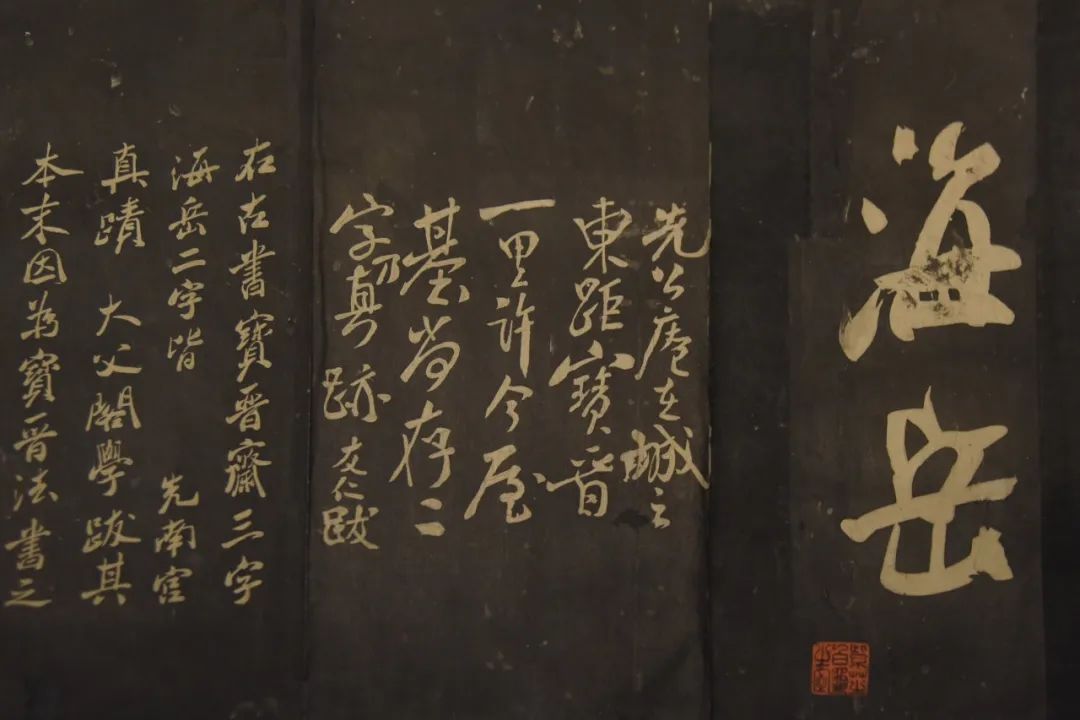 海岳
先公庵在城之
東距寶晉
一里許今屋
基尚存二
字乃真跡 友仁跋
右古書寶晉齋三字
海岳二字皆 先南宮
真蹟 大父閣學跋其
本末因為寶晉法書之